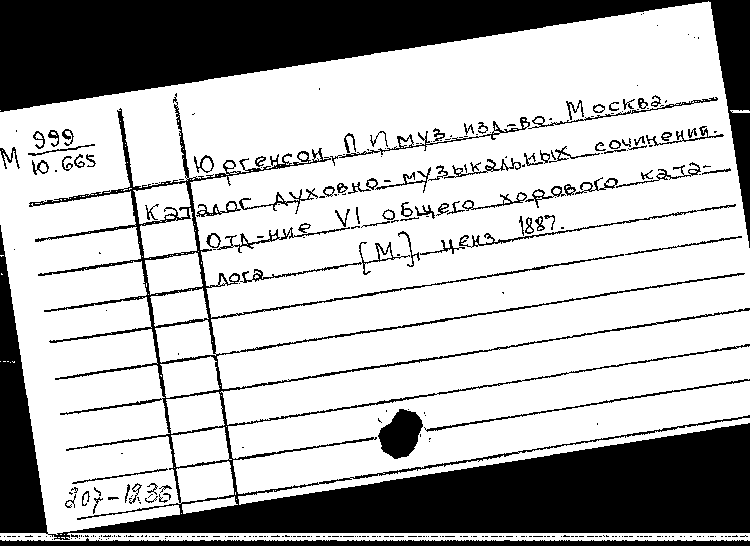 М 999
10.665
Юргенсон, П. И, муз. изд-во. Москва.
Каталог духовно-музыкальных сочинений.
Отд-ние VI общего хорового ката-
лога. [М.], ценз. 1887.
207-1236